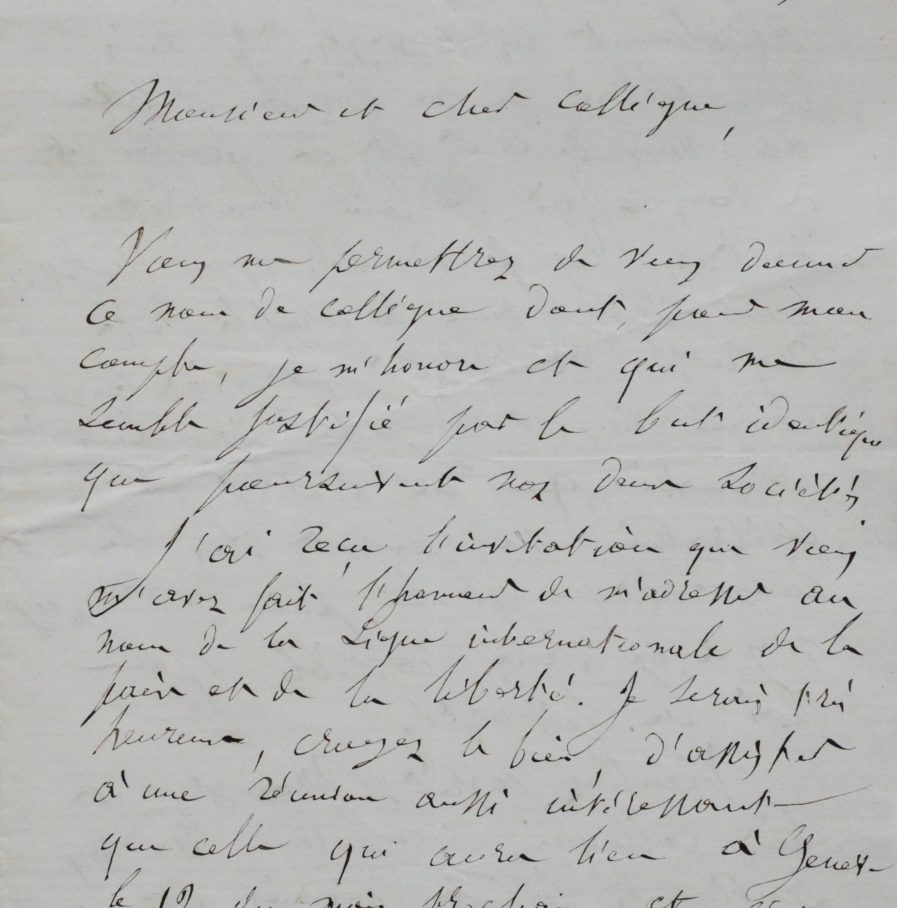 Monsieur et cher collègue,
Vous me permettrez de vous donner
ce nom de collègue dont, pour mon
compte, je m'honore et qui me
semble justifié par le but identique
que poursuivent nos deux sociétés
J'ai reçu l'invitation que vous
m'avez fait l'honneur de m'adresser au
nom de la Ligue internationale de la
paix et de la liberté. Je serais très
heureux, croyez le bien, d'assister
à une réunion aussi intéressante
que celle qui aura lieu à Genève
le 12 du mois prochain et